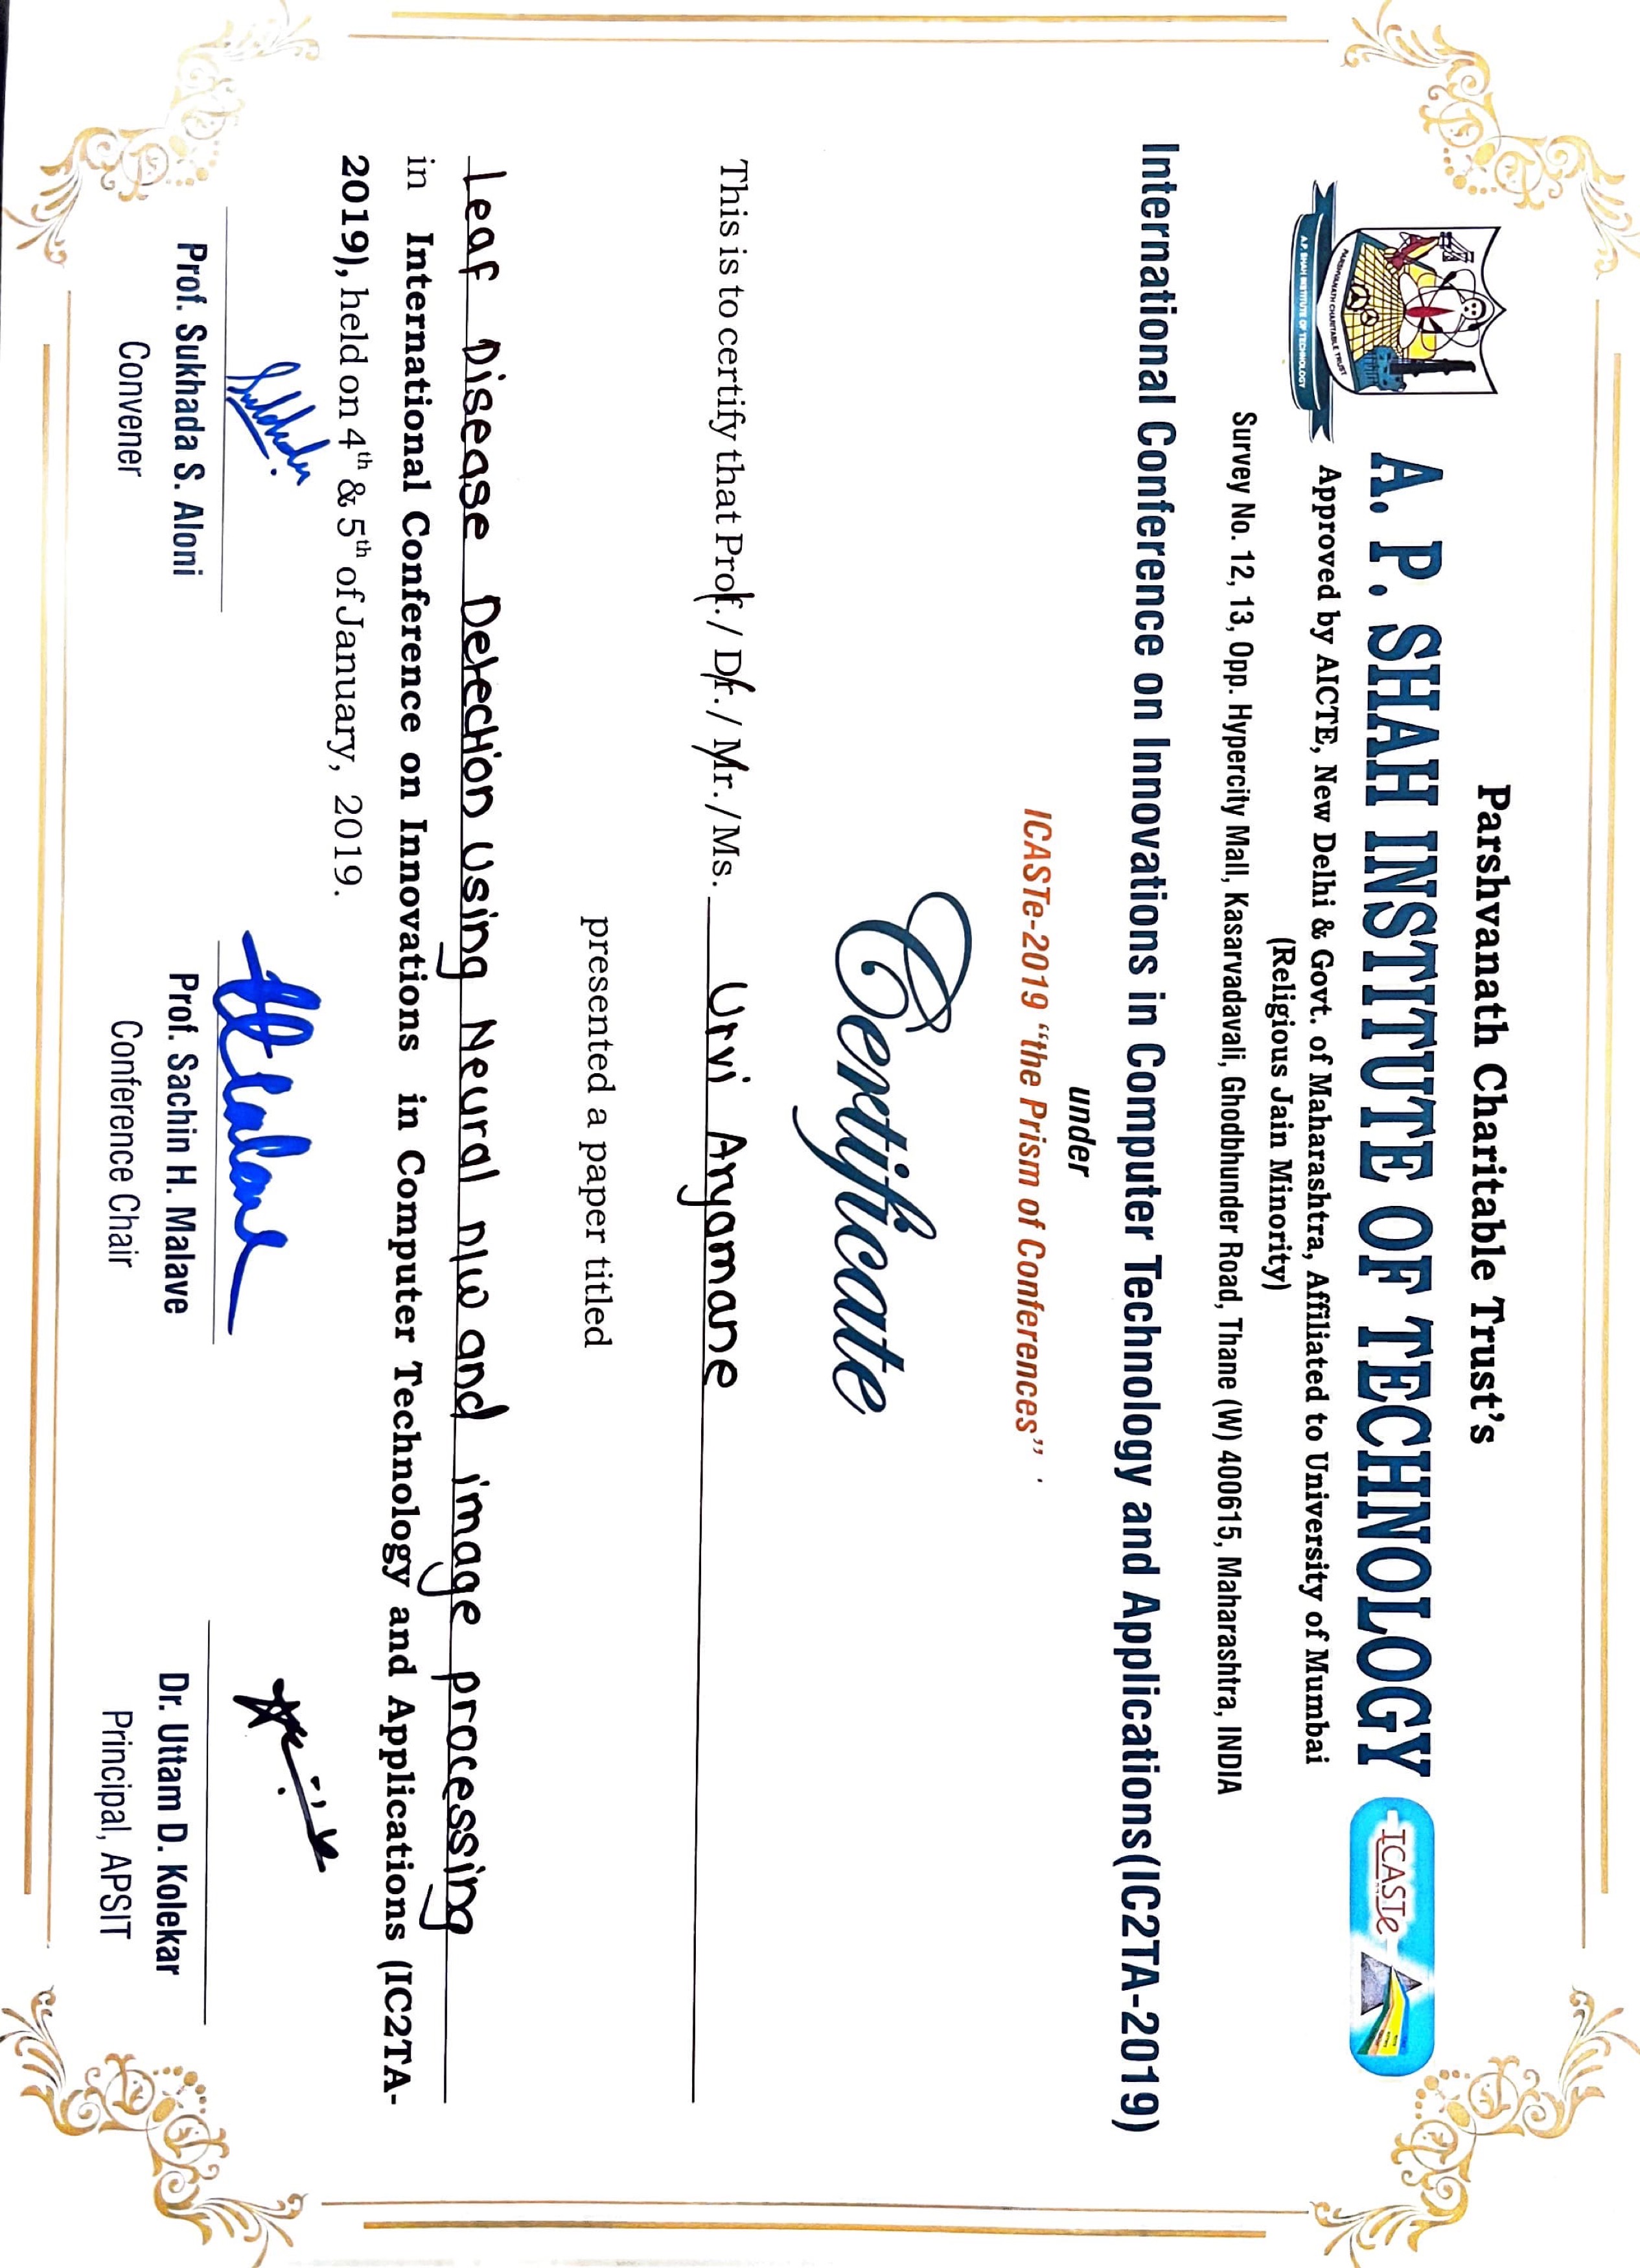 Parshvanath Charitable Trust's
A. P. SHAH INSTITUTE OF TECHNOLOGY
ICASTe
PARSHVANATH CHARITABLE TRUST
A.P. SHAH INSTITUTE OF TECHNOLOGY
Approved by AICTE, New Delhi & Govt. of Maharashtra, Affiliated to University of Mumbai
(Religious Jain Minority)
Survey No. 12, 13, Opp. Hypercity Mall, Kasarvadavali, Ghodbhunder Road, Thane (W) 400615, Maharashtra, INDIA
International Conference on Innovations in Computer Technology and Applications(IC2TA-2019)
under
ICASTe-2019 “the Prism of Conferences”
Certificate
This is to certify that Prof./ Dr./ Mr./Ms. Urvi Aryamane
presented a paper titled
Leaf Disease Detection Using Neural n/w and image processing
in International Conference on Innovations in Computer Technology and Applications (IC2TA-
2019), held on 4th & 5th of January, 2019.
Prof. Sukhada S. Aloni
Convener
Prof. Sachin H. Malave
Conference Chair
Dr. Uttam D. Kolekar
Principal, APSIT